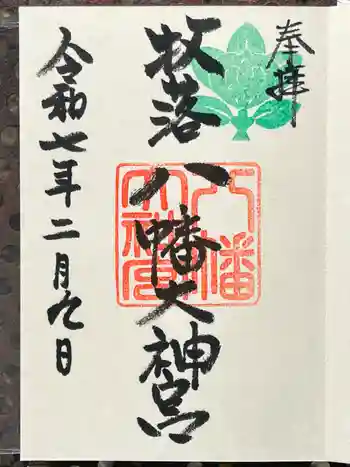 奉拝
牧落八幡大神宮
八幡大神宮
令和七年二月九日